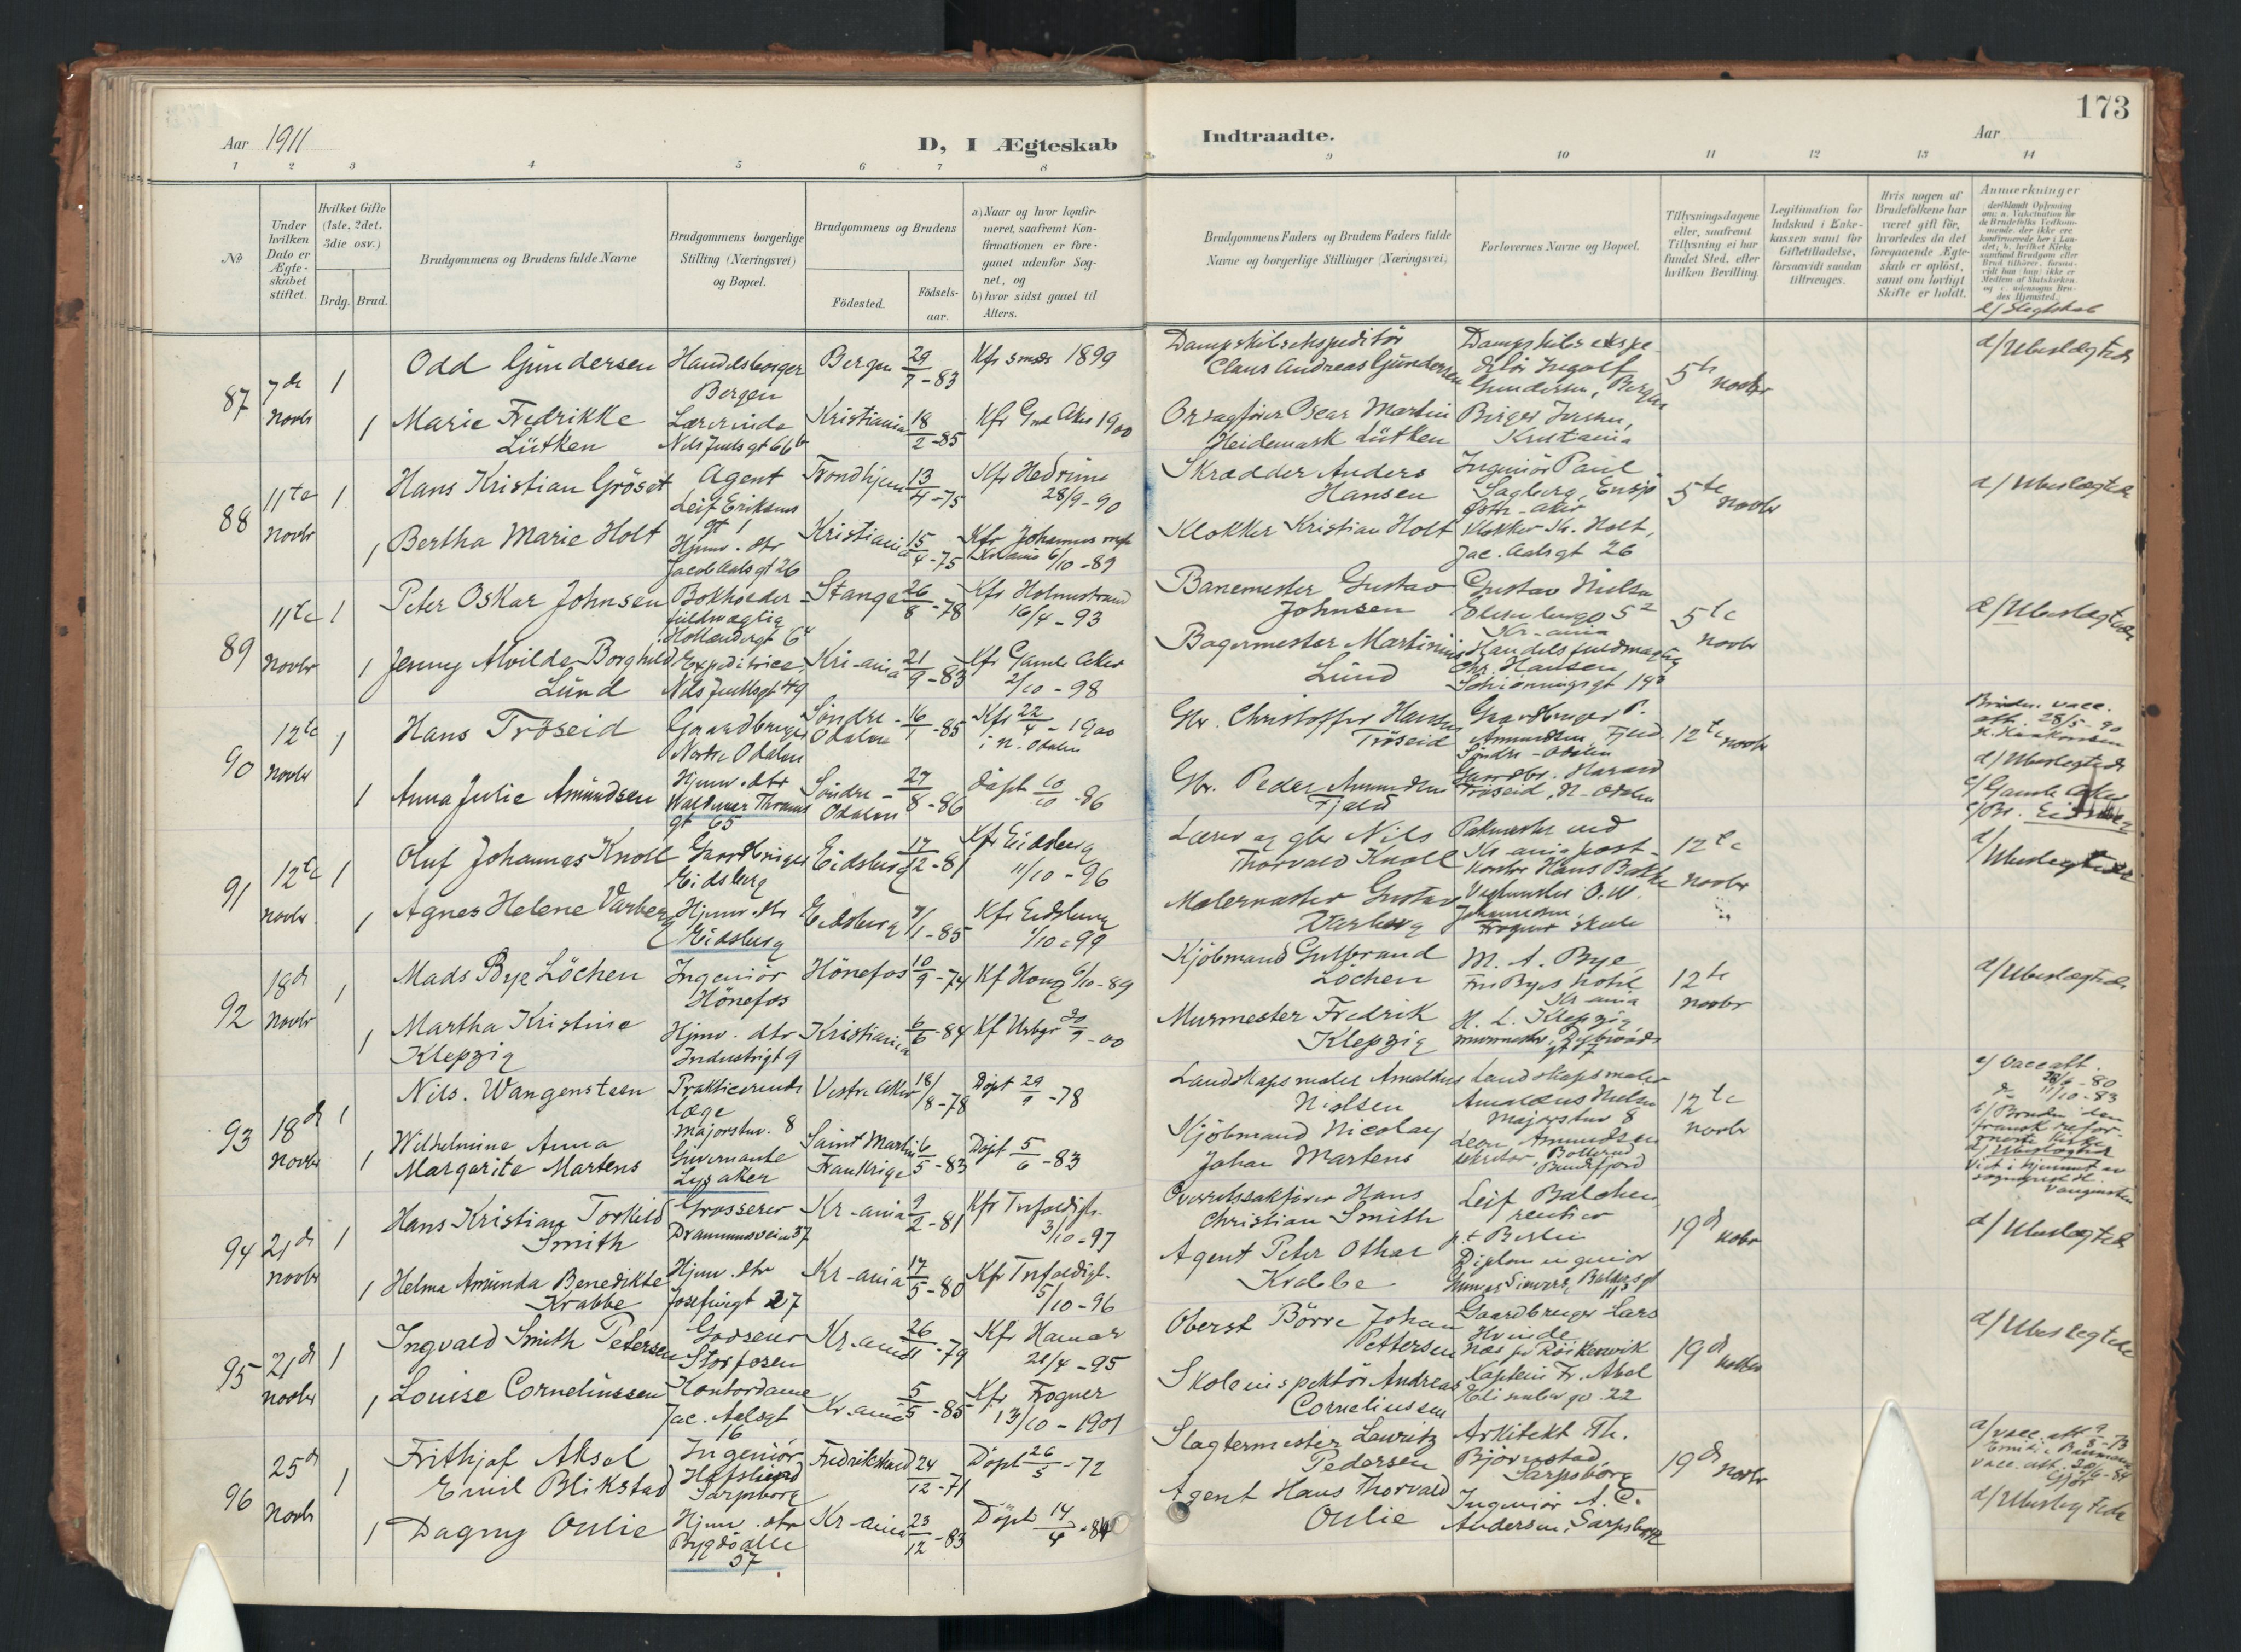 173
Aar 1911
D, I Ægteskab
Indtraadte.
Aar
1 2 3 4 5 6 7 8
9 10 11 12 13 14
No
Under hvilken Dato er Ægteskabet stiftet.
Hvilket Gifte (1ste, 2det, 3die osv.)
Brdg. Brud.
Brudgommens og Brudens fulde Navne
Brudgommens borgerlige Stilling (Næringsvei) og Bopæl.
Brudgommens og Brudens
Födested.
Födsels-aar.
a) Naar og hvor konfirmeret, saafremt Konfirmationen er foregaaet udenfor Sognet, og
b) hvor sidst gaaet til Alters.
Brudgommens Faders og Brudens Faders fulde Navne og borgerlige Stillinger (Næringsvei)
Forlovernes Navne og Bopæl.
Tillysningsdagene eller, saafremt Tillysning ei har fundet Sted, efter hvilken Bevilling.
Legitimation for Indskud i Enkekassen samt for Giftetilladelse, forsaavidt saadan tiltrænges.
Hvis nogen af Brudefolkene har været gift för, hvorledes da det foregaaende Ægteskab er oplöst, samt om lovligt Skifte er holdt.
Anmerkninger
d/ Slegtskab
87
7de Novbr
1
Odd Gundersen
Handelsborger
Bergen
Bergen
29/7 - 83
Kfr 1899
Dampskibsekspeditör
Claus Andreas Gundersen
Dampskibsekspe-
ditör Ingolf
Gundersen, Bergen
5te Novbr
d/ Ubeslægtede
1
Marie Fredrikke
Lütken
Lærerinde
Nils Juels gt 66b
Kristiania
18/2 - 85
Kfr Gml Aker 1900
Oscar Martin
Heidemark Lütken
Birger Iversen,
Kristiania
88
11te Novbr
1
Hans Kristian Gröset
Agent
Leif Eriksens
gt 1
Trondhjem
13/4 - 75
Kfr Hedrum
28/9 - 90
Skrædder Anders
Hansen
Ingeniör Paul
Sagberg, Ensjö
Östr. Aker
5te Novbr
d/ Ubeslegtede
1
Bertha Marie Holt
Hjemv. dtr
Jacob Aals gt 26
Kristiania
15/4 - 75
Kfr Johannes
Kr.ania 6/10 - 89
Klokker Kristian Holt
Klokker Kr. Holt,
Jac. Aalsgt 26
89
11te Novbr
1
Peter Oskar Johnsen
Bokholder-
fuldmægtig
Hollendergt 6
Stange
26/8 - 78
Kfr Holmestrand
16/4 - 93
Banemester Gustav
Johnsen
Gustav Nielsen
Kr-ania
5te Novbr
d/ Ubeslegtede
1
Jenny Alvilde Borghild
Lund
Expeditrice
Nils Juelsgt 49
Kri-ania
21/9 - 83
Kfr Gamle Aker
2/10 - 98
Bagermester Martinius
Lund
Handelsfuldmægtig
Chr. Hansen,
Schiönningsgt 14
90
12te Novbr
1
Hans Tröseid
Gaardbruger
Nordre Odalen
Söndre-
Odalen
16/1 - 85
Kfr 22/4 - 1900
i N. Odalen
Gbr. Christoffer Hansen
Tröseid
Gaardbruger P.
Amundsen, Fjeld.
Söndre-Odalen
12te Novbr
Bruden. vacc.
att. 28/5 - 90
H. Haakonsen
d/ Ubeslegtede
1
Anna Julie Amundsen
Hjemv. dtr
Waldemar Thranes
gt 65
Söndre-
Odalen
27/8 - 86
Döpt 10/10 - 86
Gbr. Peder Amundsen
Fjeld
Gaardbr. Harald
Tröseid, N-Odalen
e/ Gamle Aker
91
12te Novbr
1
Oluf Johannes Knoll
Gaardbruger
Eidsberg
Eidsberg
17/12 - 81
Kfr Eidsberg
11/10 - 96
Lærer og gbr Nils
Thorvald Knoll
Pakmester ved
Kr-ania post-
kontor Hans Bakke
12te Novbr
d/
Ubeslegtede
1
Agnes Helene Varberg
Hjemv. dtr
Eidsberg
Eidsberg
9/1 - 85
Kfr Eidsberg
1/10 - 99
Malermester Gustav
Varberg
Vagtmester O. W.
Johannesen,
Frogner skole
92
18de Novbr
1
Mads Bye Löchen
Ingeniör
Hönefos
Hönefos
10/9 - 74
Kf Houg 6/10 - 89
Kjöbmand Gulbrand
Löchen
M. A. Bye
Fru Byes hotel
Kr-ania
12te Novbr
d/ Ubeslægtede
1
Martha Kristine
Klepzig
Hjemv. dtr
Industrigt 9
Kristiania
6/6 - 84
Kf Urbgr 30/9 - 00
Murmester Fredrik
Klepzig
H. L. Klepzig
murmester, Dybwads
gt 7
93
18de Novbr
1
Nils. Wangensteen
Prakticerende
læge
Majorstuv. 8
Vestre Aker
18/8 - 78
Döpt 29/9 - 78
Landskapsmaler Amaldus
Nielsen
Landskapsmaler
Amaldus Nielsen
Majorstuv 8
12te Novbr
a/ Vacc att.
28/9 - 80
11/10 - 83
b/ Bruden den
fransk refor-
merte kirke
d/ Ubeslegtede
Viet i hjemmet av
sogneprest H.
Vangensteen
1
Wilhelmine Anna
Margarite Martens
Guvernante
Lysaker
Saint Martin
Frankrige
6/5 - 83
Döpt 5/6 - 83
Kjöbmand Nicolay
Johan Martens
Leon. Amundsen
sekretær, Bollerud
Bundefjord
94
21de Novbr
1
Hans Kristian Torkild
Smith
Grosserer
Drammensvein 37
Kr-ania
9/2 - 81
Kfr Trefoldigh.
3/10 - 97
Overretssakförer Hans
Christian Smith
Leif Balchen,
rentier
p.t Berlin
19de Novbr
d/ Ubeslegtede
1
Helma Amunda Benedikte
Krabbe
Hjemv. dtr
Josefinegt 27
Kr-ania
17/5 - 80
Kfr Trefoldigh.
5/10 - 96
Agent Peter Othar
Krabbe
Diplom ingeniör
Gunnar Sievers, Baldersgt
95
21de Novbr
1
Ingvald Smith Petersen
Godseier
Storfosen
Kr-ania
26/11 - 79
Kfr Hamar
21/4 - 95
Oberst Börre Johan
Pettersen
Gaardbruger Lars
Hvinde
Næs pr Röikenvik
19de Novbr
d/ Ubeslegtede
1
Louise Cornelinssen
Kontordame
Jac. Aalsgt
16
Kr.ania
5/5 - 85
Kfr Frogner
13/10 - 1901
Skoleinspektör Andreas
Corneliussen
Kaptein Fr. Abel
22
96
25de Novbr
1
Frithjof Aksel
Emil Blikstad
Ingeniör
Hafslund
Sarpsborg
Fredrikstad
24/12 - 71
Döpt 26/5 - 72
Slagtermester Lauritz
Pedersen
Arkitekt Th.
Bjørnstad
Sarpsborg
19de Novbr
a/ vacc. att
vacc. att.
d/ Ubeslegtede
1
Dagny Oulie
Hjemv. dtr
Bygdö alle
57
Kr-ania
23/12 - 83
Döpt 14/4 - 84
Agent Hans Thorvald
Oulie
Ingeniör A. C.
Andersen, Sarpsborg